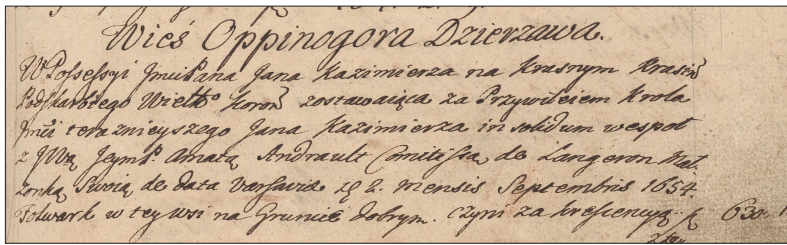 Wieś Oppinogora Dzierzawa.
W Possessyi Jmci Pana Jana Kazimierza na Krasnym Krasiń
Podskarbiego Wielkº Koroñ zostawaiąca za Przywileiem Krola
Jmći teraznieyszego Jana Kazimierza in solidum wespoł
z JWą Jeymć Amatą Andrault Comitissą de Langeron Mał
zonką Swoią de data Varsaviæ 2. Mensis Septembris 1654.
Folwark w tey wsi na Gruncie dobrym. czyni za krescencyą 630